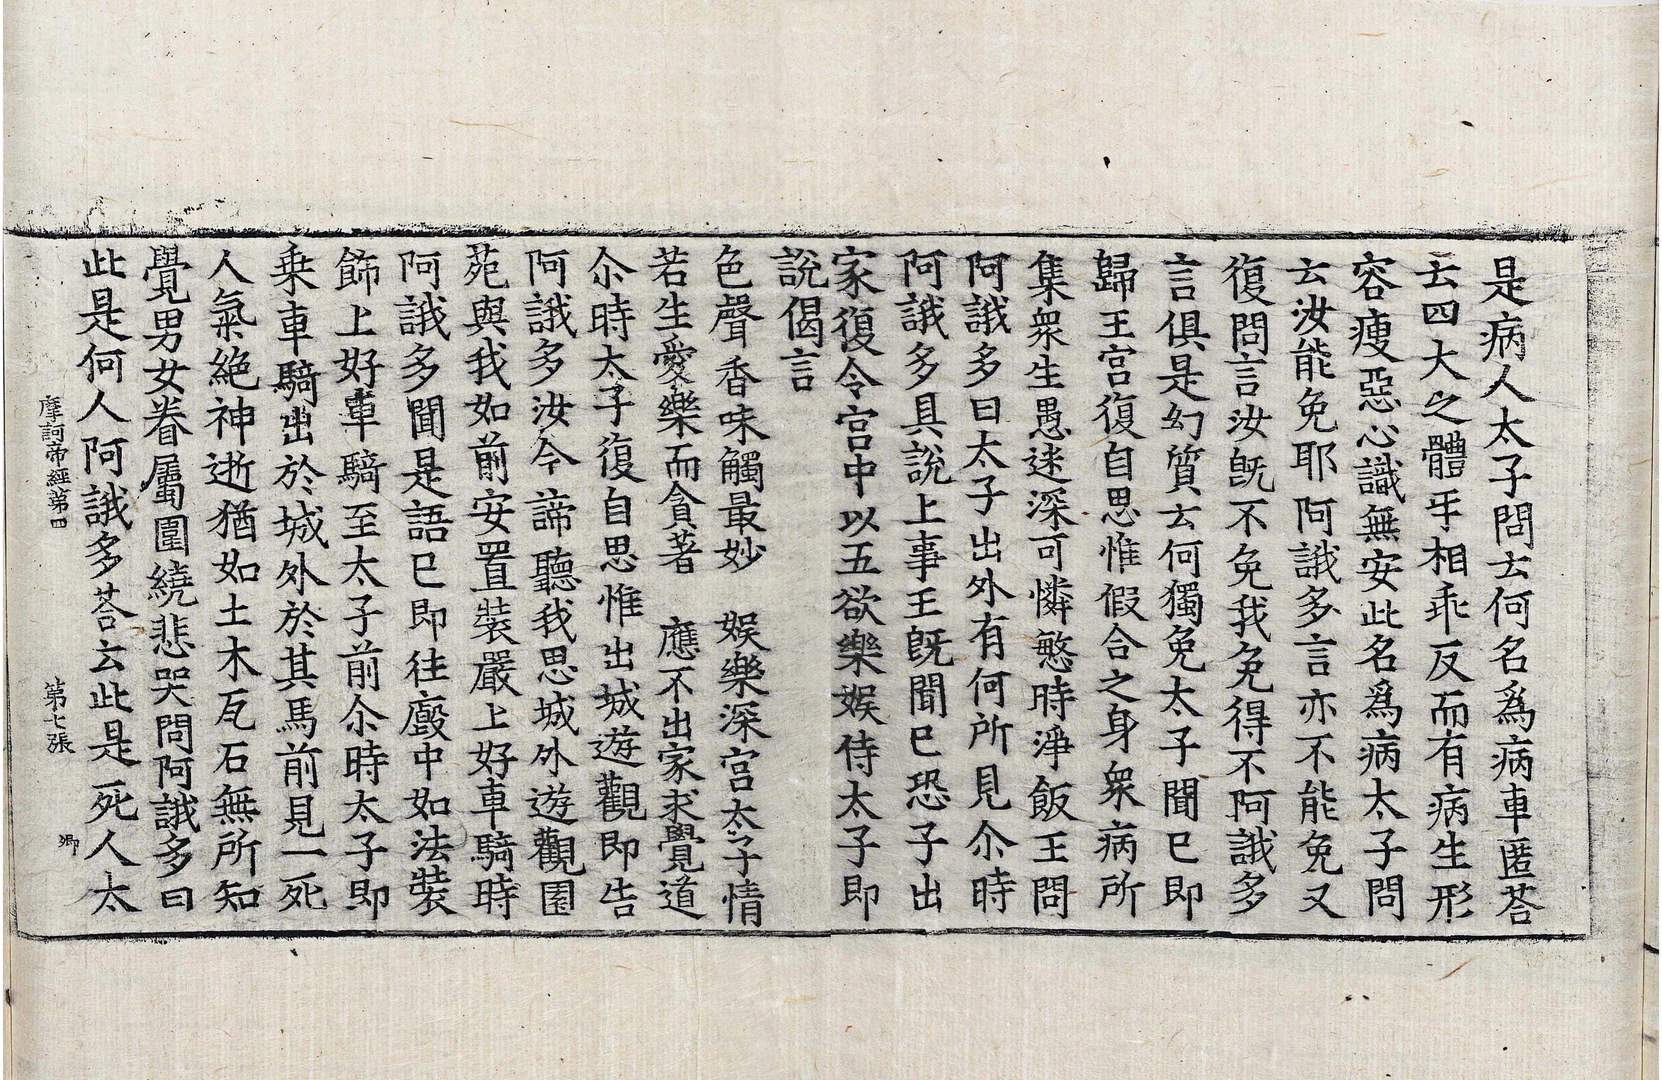 是病人太子問云何名爲病車匿荅
云四大之體乎相乖反而有病生形
容瘦惡心識無安此名爲病太子問
云汝能免耶阿誐多言亦不能免又
復問言汝旣不免我免得不阿誐多
言俱是幻質云何獨免太子聞已即
歸王宮復自思惟假合之身衆病所
集衆生愚迷深可憐愍時淨飯王問
阿誐多曰太子出外有何所見尒時
阿誐多具說上事王旣聞已恐子出
家復令宮中以五欲樂娛侍太子即
說偈言
色聲香味觸最妙　娛樂深宮太子情
若生愛樂而貪著　應不出家求覺道
尒時太子復自思惟出城遊觀即告
阿誐多汝今諦聽我思城外遊觀園
苑與我如前安置裝嚴上好車騎時
阿誐多聞是語已即往廄中如法裝
飾上好車騎至太子前尒時太子即
乗車騎出於城外於其馬前見一死
人氣絶神逝猶如土木瓦石無所知
覺男女眷屬圍繞悲哭問阿誐多曰
此是何人阿誐多荅云此是死人太
摩訶帝經第四　第七張　卿